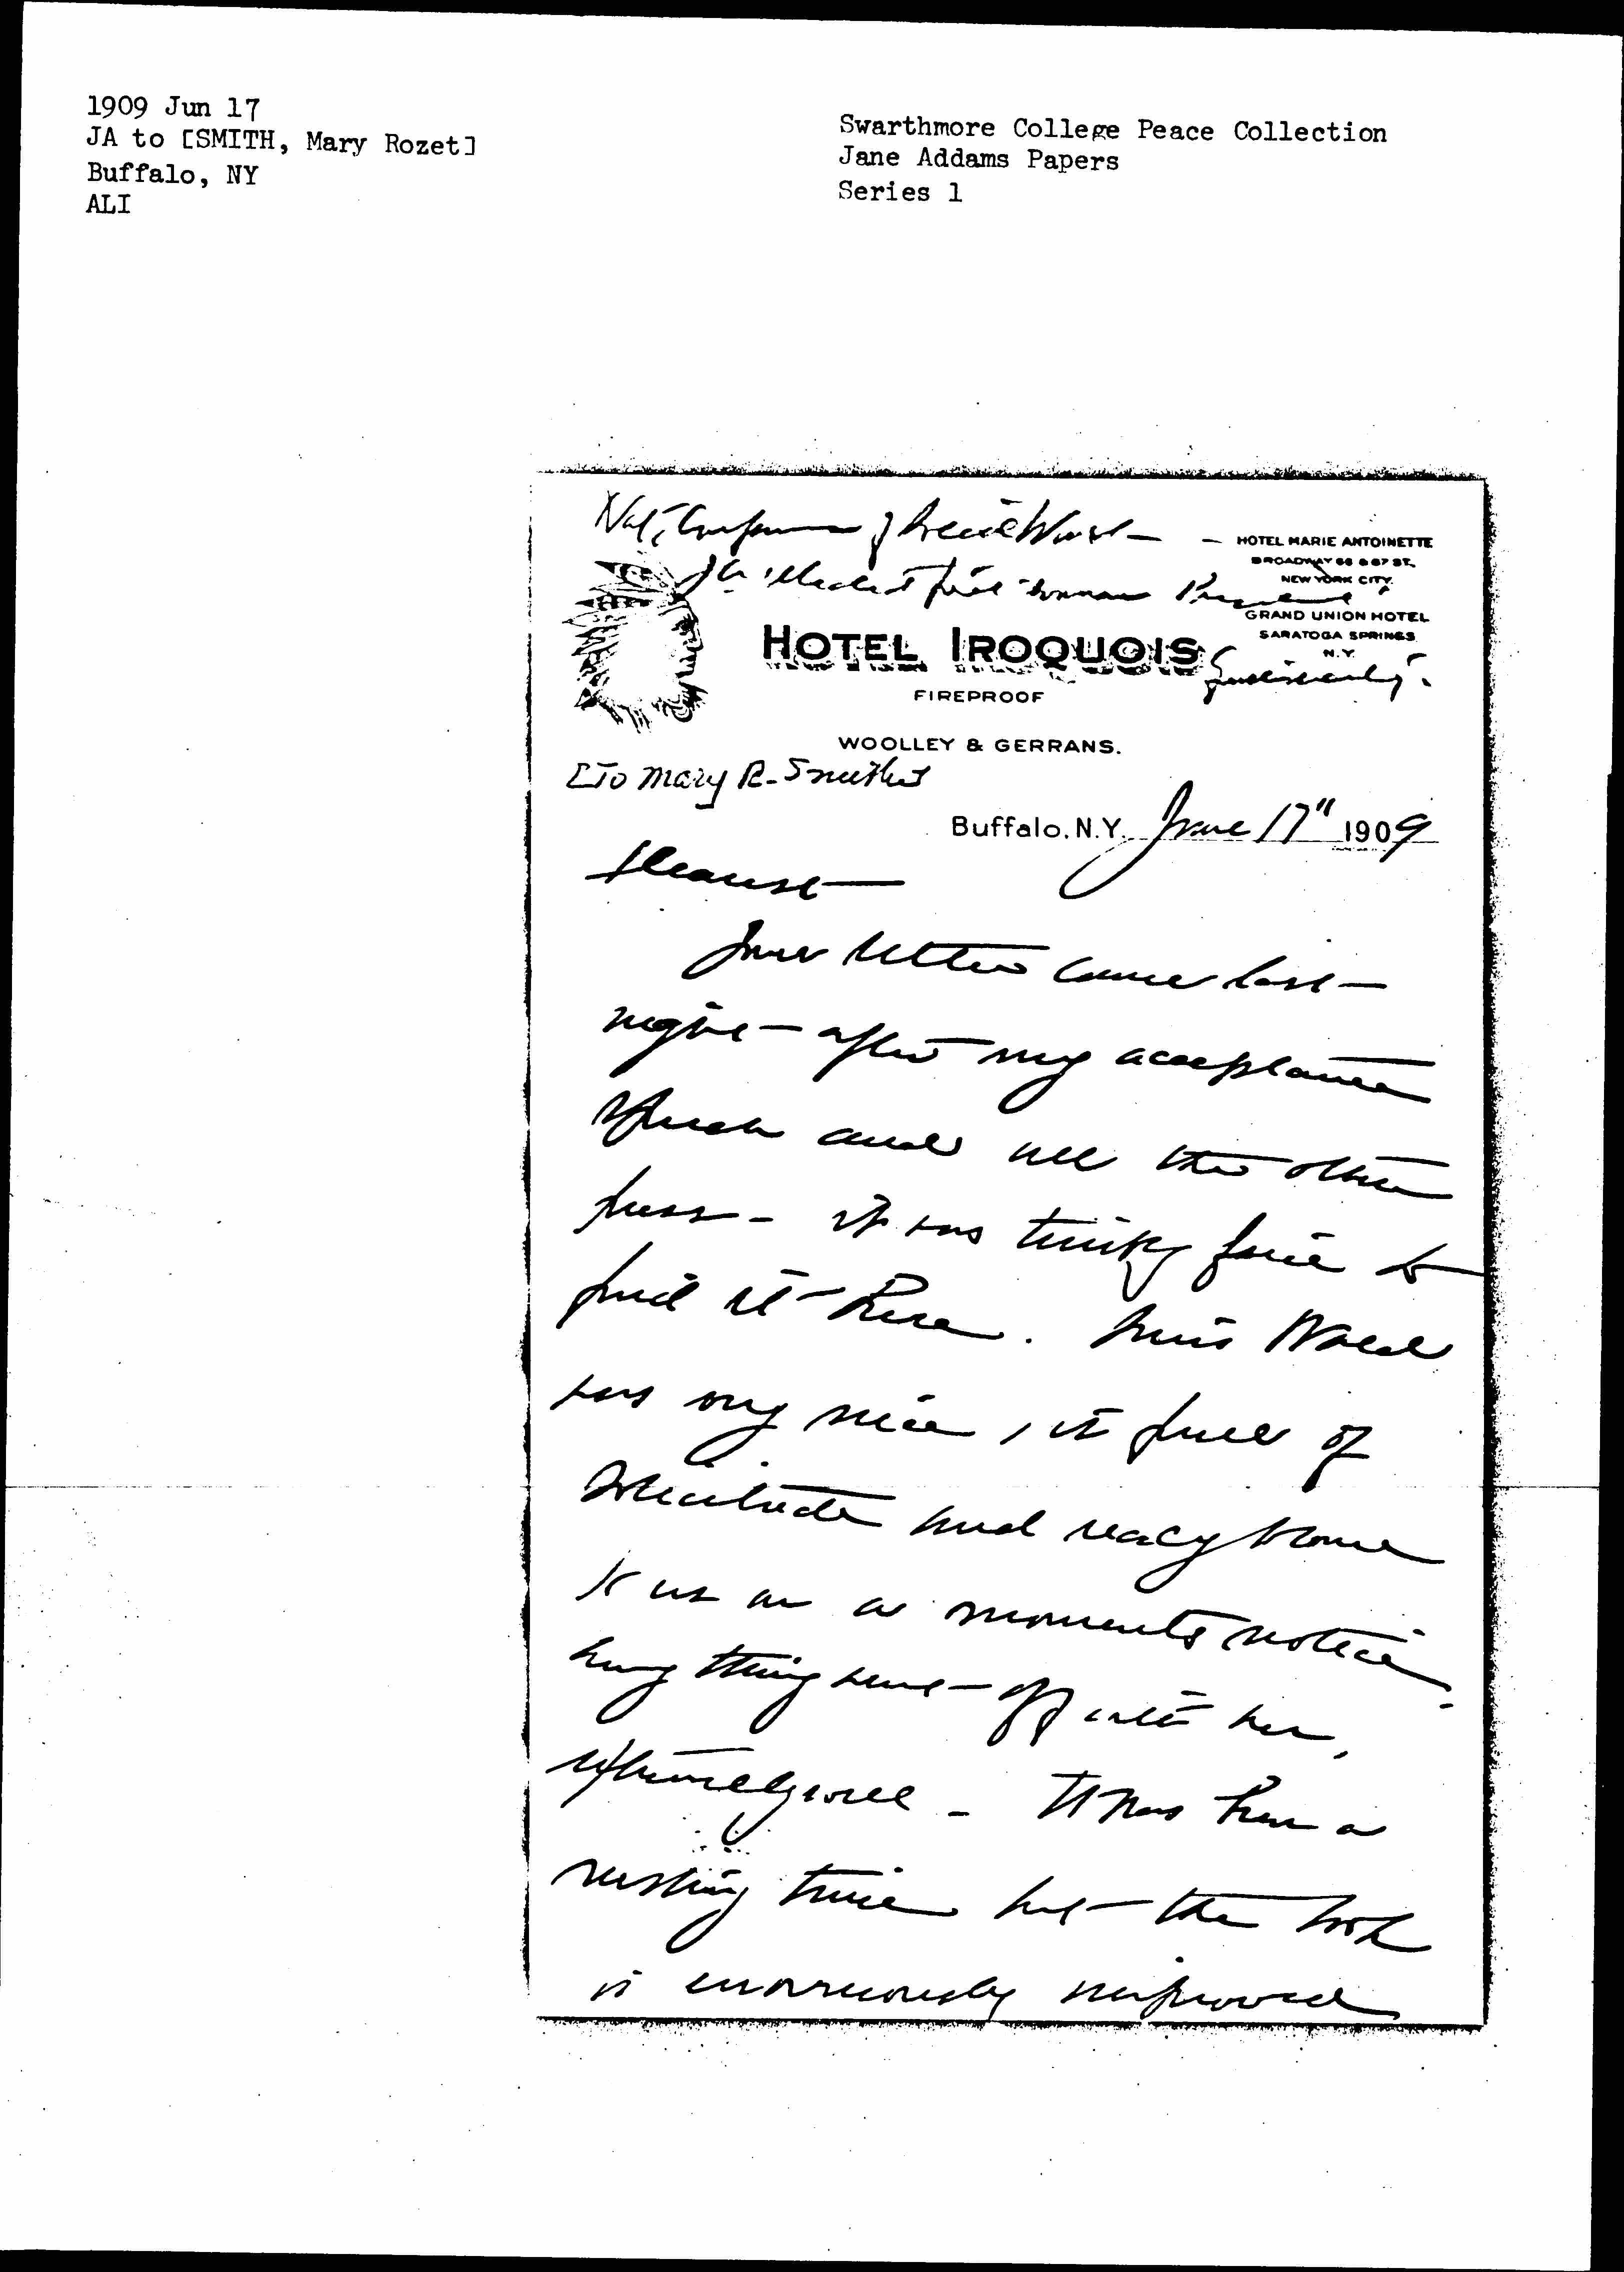 1909 Jun 17
JA to [SMITH, Mary Rozet]
Buffalo, NY
ALI
Swarthmore College Peace Collection
Jane Addams Papers
Series 1
Nat. Conference of Social Work —
JA elected first woman President
unanimously.
HOTEL MARIE ANTOINETTE
BROADWAY 66 & 67 ST.
NEW YORK CITY.
GRAND UNION HOTEL
SARATOGA SPRINGS
N.Y.
HOTEL IROQUOIS
FIREPROOF
WOOLLEY & GERRANS.
[To Mary R. Smith]
Buffalo, N.Y. June 17" 1909
Dearest
Your letter came last
night — after my acceptance
speech and all the other
fuss — it was
find it here. Miss Wald
was very nice, & full of
solicitude and ready to come
to us on a moments notice.
Every thing went off with her,
extremely well — It has been a
rushing time but the book
is enormously improved